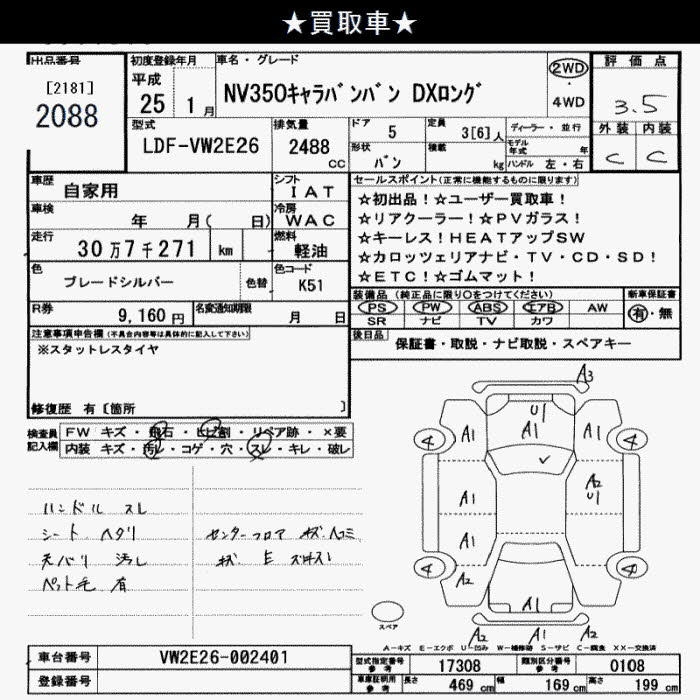 ★買取車★
出品番号
[2181]
2088
初度登録年月
平成
25 1月
車名・グレード
NV350キャラバンバン DXロング
2WD
・
4WD
評価点
3.5
外装 内装
C C
型式
LDF-VW2E26
排気量
2488 cc
ドア 5
定員 3[6]人
ディーラー・並行
形状 バン
積載 kg
モデル年式 年
ハンドル 左・右
車歴 自家用
シフト IAT
車検 年 月( 日)
冷房 WAC
走行 30万7千271 km
燃料 軽油
色 ブレードシルバー 色替
色コード K51
R券 9,160円
名変通知期限 月 日
セールスポイント(正常に機能するものに限ります)
☆初出品!☆ユーザー買取車!
☆リアクーラー!☆PVガラス!
☆キーレス!HEATアップSW
☆カロッツェリアナビ・TV・CD・SD!
☆ETC!☆ゴムマット!
装備品 (純正品に限り○をつけてください)
PS PW ABS エアB AW
SR ナビ TV カワ
新車保証書
有・無
後日品 保証書・取説・ナビ取説・スペアキー
注意事項申告欄(不具合内容等は具体的に記入して下さい)
※スタットレスタイヤ
修復歴 有〔箇所 〕
検査員記入欄
FW キズ・飛石・ヒビ割・リペア跡・×要
内装 キズ・汚レ・コゲ・穴・スレ・キレ・破レ
ハンドル スレ
シート ヘタリ
天バリ 汚レ
ペット毛 有
センターフロア キズ ヘコミ
A3
U1
A1
A1
A1
4
4
A1
A2
U1
A1
4
4
A2
A1
A2
A1
A2
スペア
A-キズ E-エクボ U-凹み W-補修跡 S-サビ C-腐食 XX-交換済
車台番号 VW2E26-002401
登録番号
型式指定番号 参考 17308
類別区分番号 参考 0108
車庫証明用 参考
長さ 469 cm
幅 169 cm
高さ 199 cm